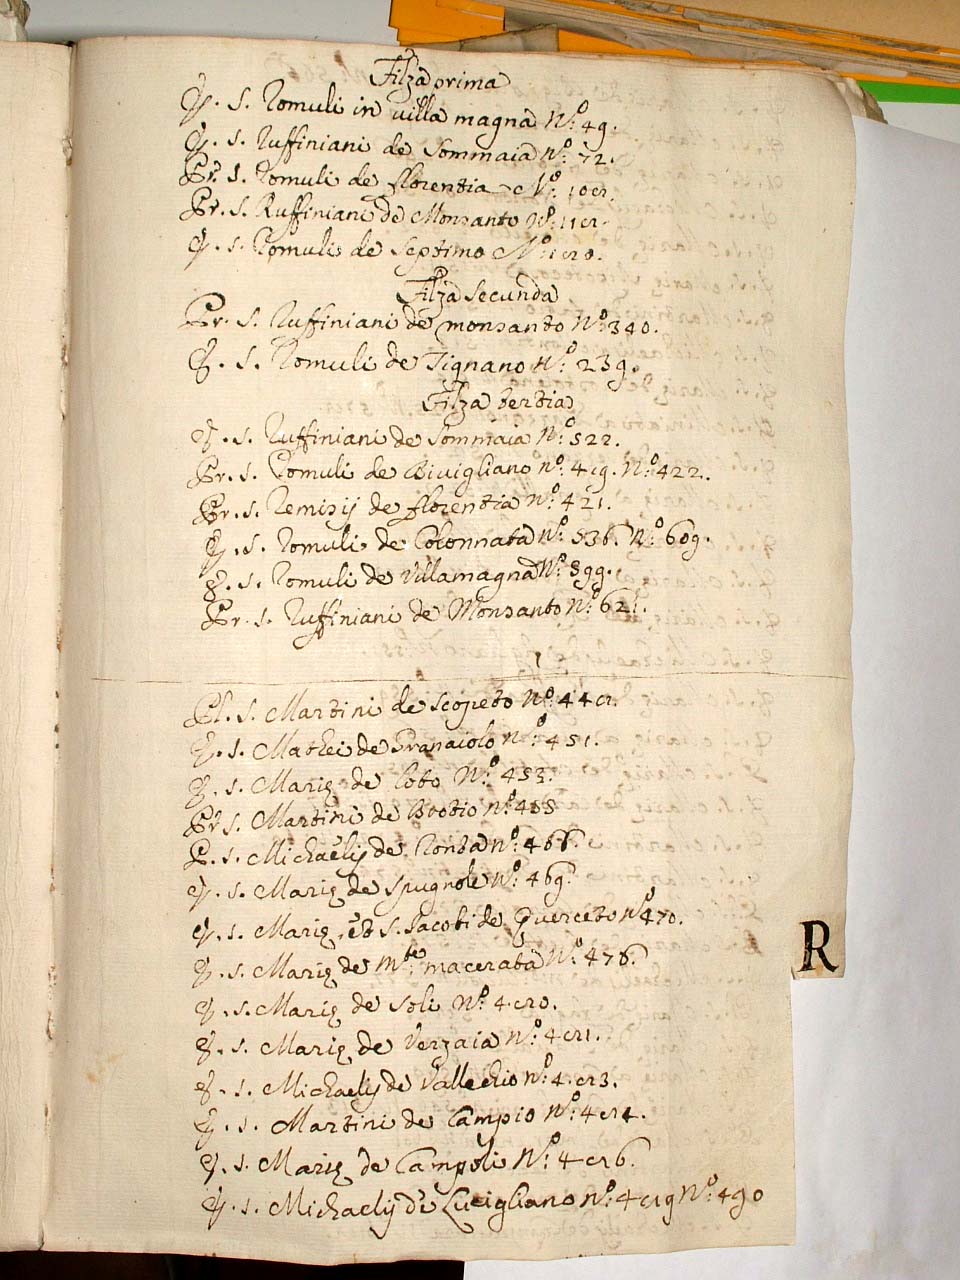 Filza prima
P. S. Romuli in villa magna N.o 49.
P. S. Ruffiniani de Sommaia N.o 72.
Pr. S. Romuli de florentia N.o
Pr. S. Ruffiniani de Monsanto N.o
P. S. Romuli de Septimo N.o
Filza Secunda
Pr. S. Ruffiniani de monsanto N.o 340.
P. S. Romuli de Tignano N.o 239.
Filza tertia
P. S. Ruffiniani de Sommaia N.o 522.
Pr. S. Romuli de Bivigliano n.o 419. N.o 422.
Pr. S. Remisij de florentia N.o 421.
P. S. Romuli de Colonnata N.o 536. N.o 609.
P. S. Romuli de Villamagna N.o 599.
Pr. S. Ruffiniani de Monsanto N.o 621.
Pl. S. Martini de Scopeto N.o
P. S. Mathei de Granaiolo N.o 451.
P. S. Marię de Coto N.o 453.
Pr. S. Martini de n.o
P. S. Michaelij de Ronta n.o 466.
P. S. Marię de Spugnole N.o 469.
P. S. Marię, et S. Jacobi de Querceto n.o 470.
P. S. Marię de M.te macerata N.o 476.
P. S. Marię de Soli N.o
P. S. Marię de Verzaia N.o
P. S. Michaelij de Vallechio n.o
P. S. Martini de Campio N.o
P. S. Marię de Campoli N.o
P. S. Michaelij de Lucigliano n.o N.o 490
R